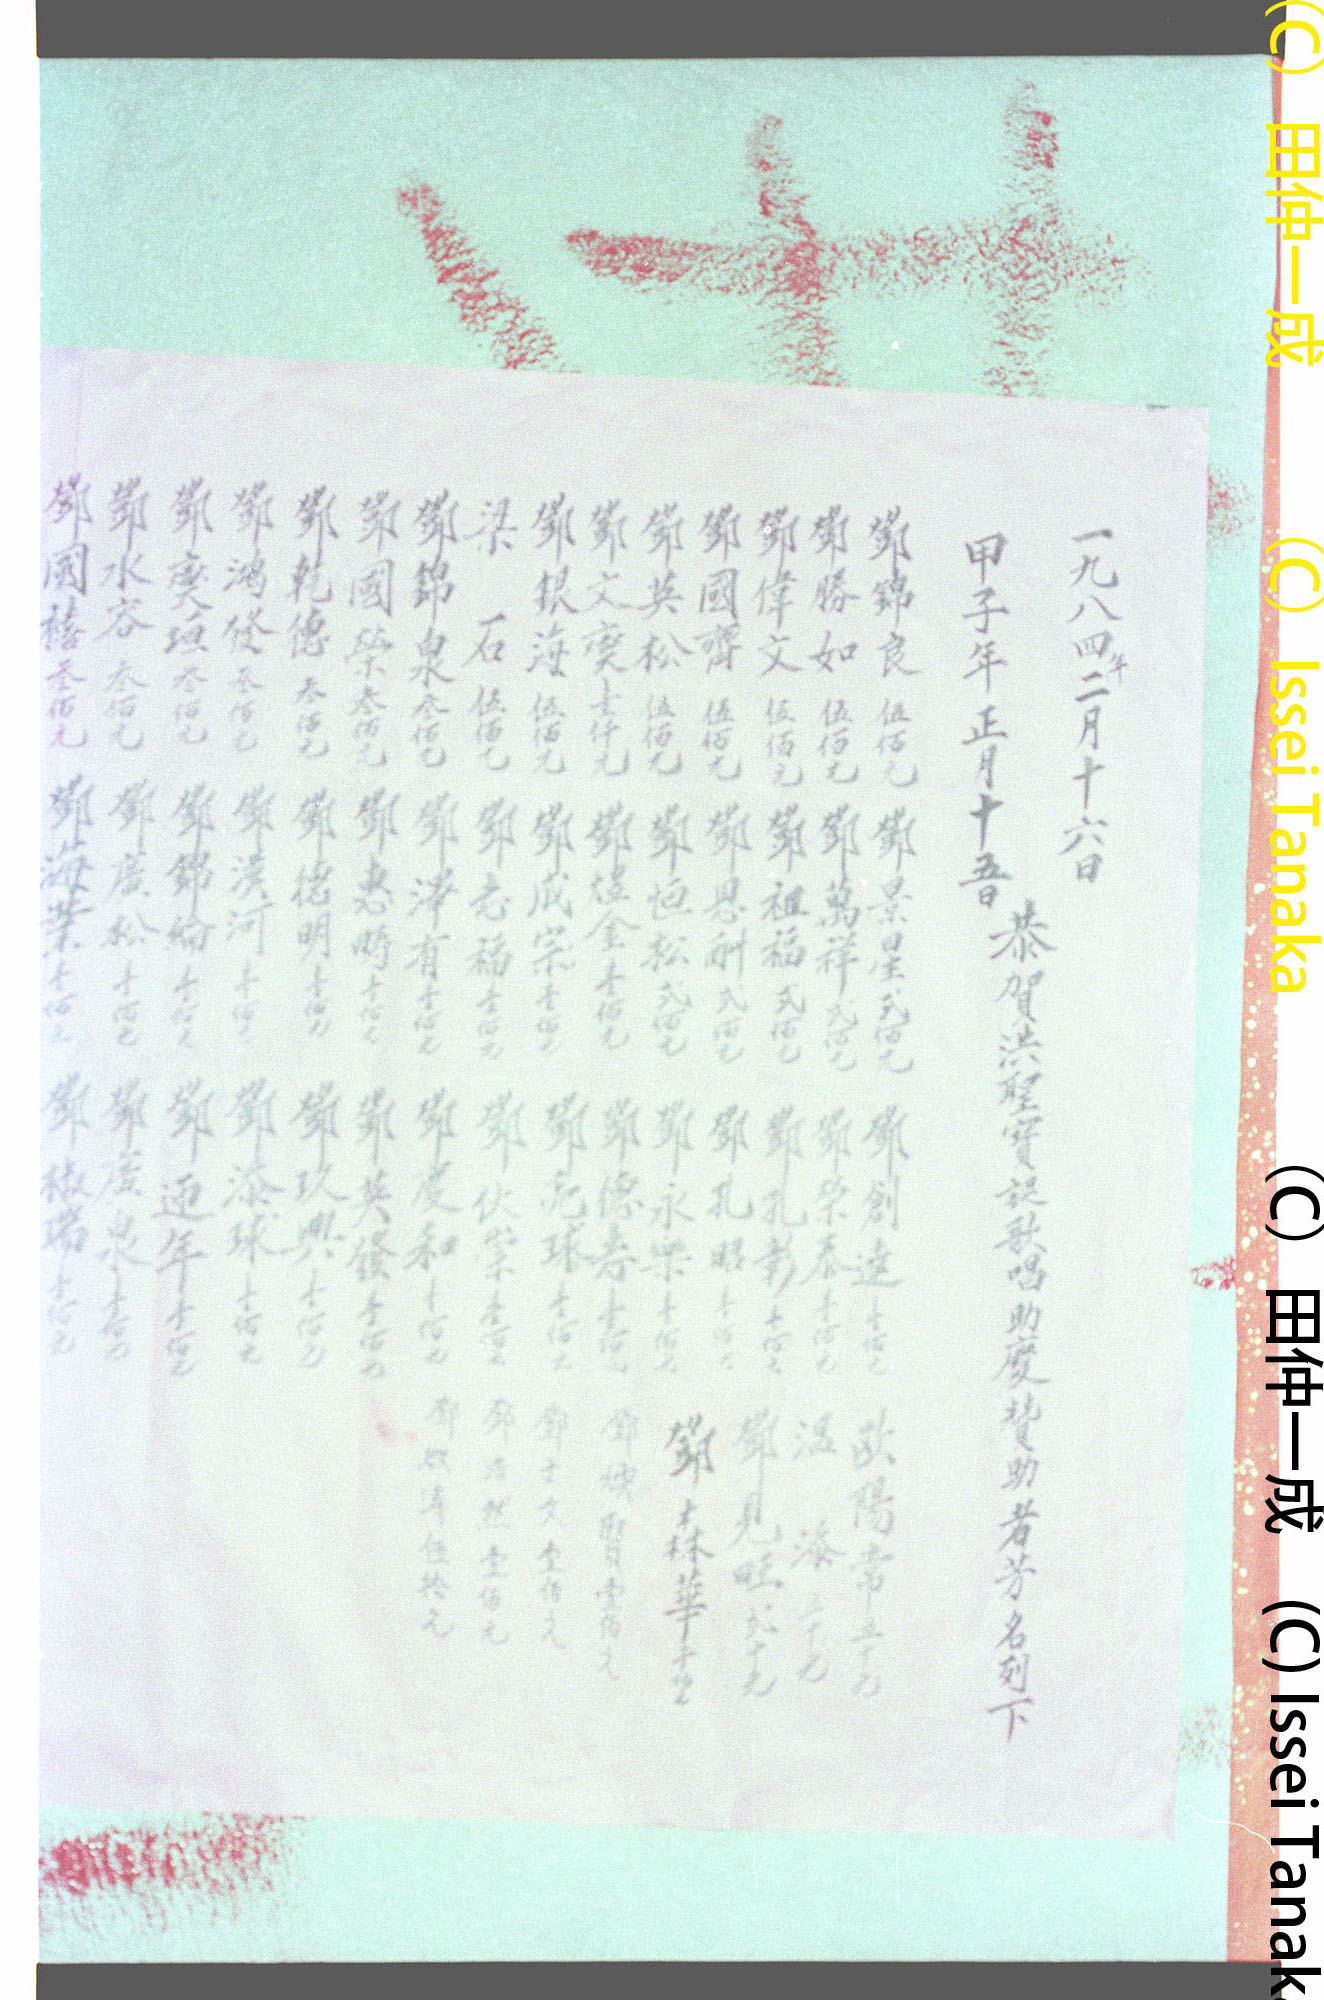 一九八四年二月十六日
甲子年正月十五日
恭賀洪聖寶誕歌唱助慶贊助者芳名列下
鄧錦良 伍佰元
鄧勝如 伍佰元
鄧偉文 伍佰元
鄧國齊 伍佰元
鄧英松 伍佰元
鄧文奕 壹仟元
鄧銀海 伍佰元
梁石 伍佰元
鄧錦泉 叁佰元
鄧國榮 叁佰元
鄧乾德 叁佰元
鄧鴻 叁佰元
鄧 叁佰元
鄧水容 叁佰元
鄧國禧 叁佰元
鄧景星 弍佰元
鄧萬祥 弍佰元
鄧祖福 弍佰元
鄧恩 弍佰元
鄧恒松 弍佰元
鄧煌金 壹佰元
鄧成宗 壹佰元
鄧志福 壹佰元
鄧津有 壹佰元
鄧惠 壹佰元
鄧德明 壹佰元
鄧漢河 壹佰元
鄧錦綸 壹佰元
鄧廣松 壹佰元
鄧海業 壹佰元
鄧創達 壹佰元
鄧榮泰 壹佰元
鄧孔彰 壹佰元
鄧孔昭 壹佰元
鄧永樂 壹佰元
鄧德壽 壹佰元
鄧 球 壹佰元
鄧伙 壹佰元
鄧慶和 壹佰元
鄧英發 壹佰元
鄧玖興 壹佰元
鄧添球 壹佰元
鄧迎年 壹佰元
鄧廣泉 壹佰元
鄧 瑞 壹佰元
歐陽常 五十元
溫漆 五十元
鄧見旺 弍十元
鄧森華
鄧 賢 壹佰元
鄧士文 壹佰元
鄧浩然 壹佰元
鄧 伍拾元
(C) 田仲一成 (C) Issei Tanaka
(C) 田仲一成 (C) Issei Tanak